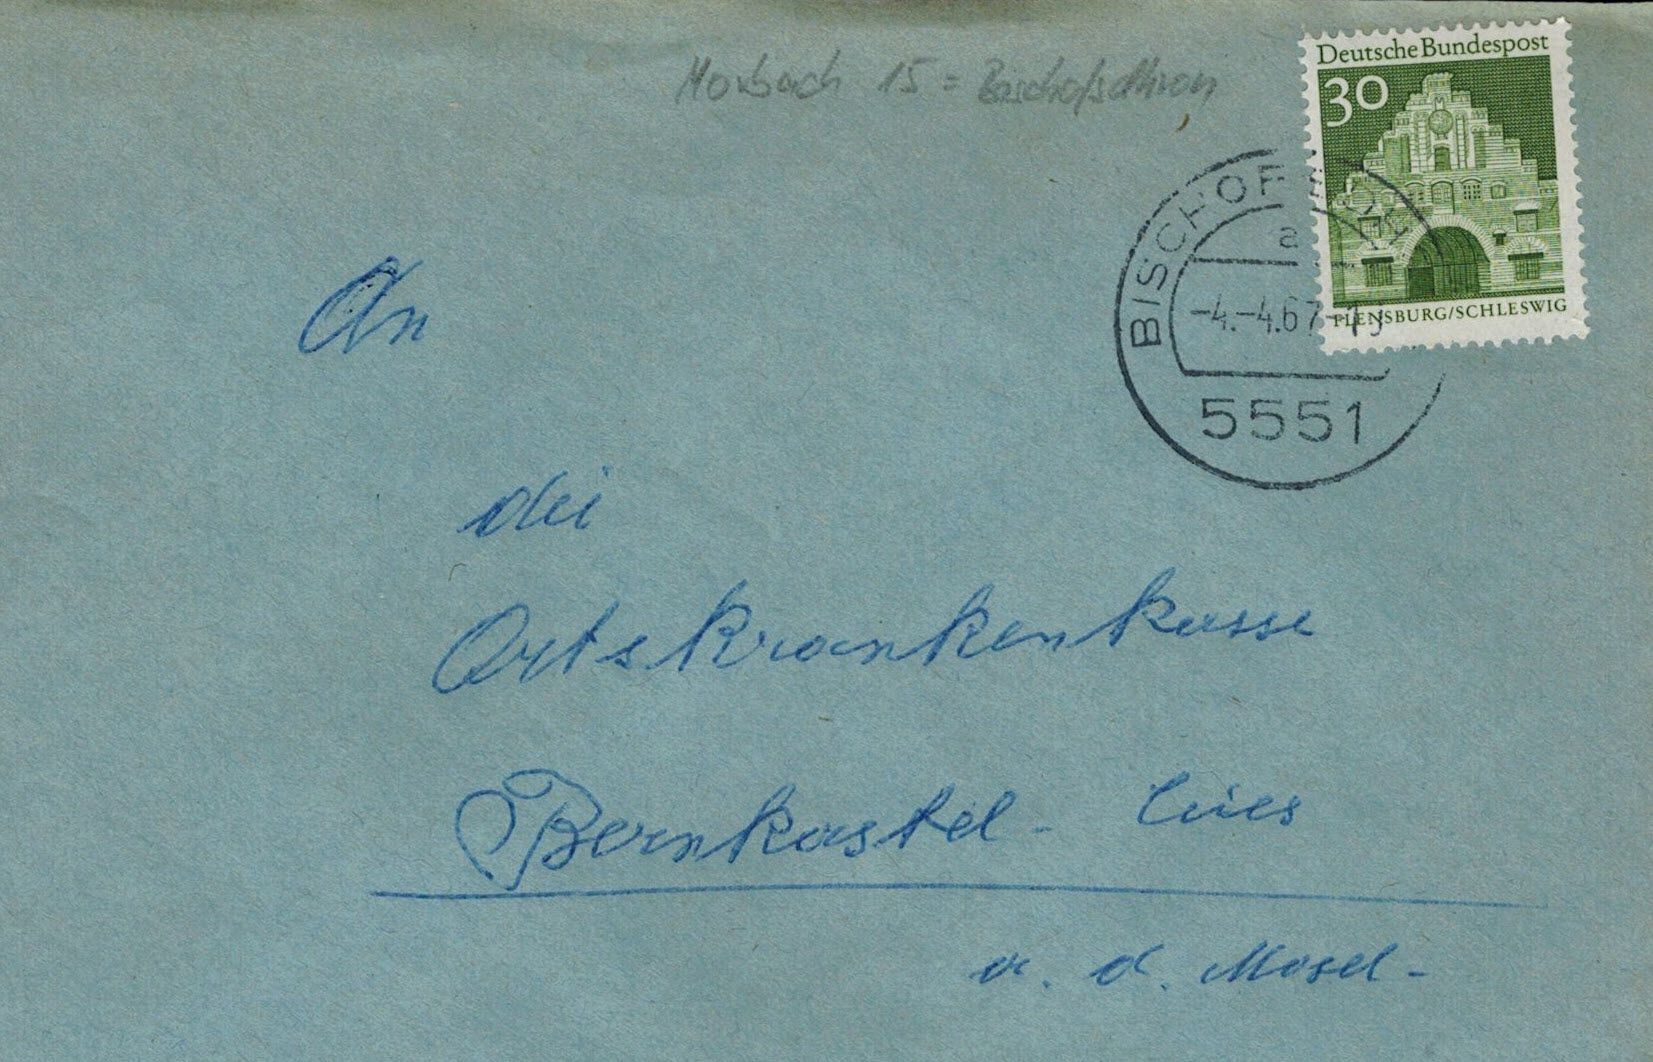 Morbach 15 = Bischofsdhron
Deutsche Bundespost
30
FLENSBURG/SCHLESWIG
BISCHOFSDHRON
a
-4.-4.67
5551
An
die
Ortskrankenkasse
Bernkastel - Cues
a. d. Mosel -